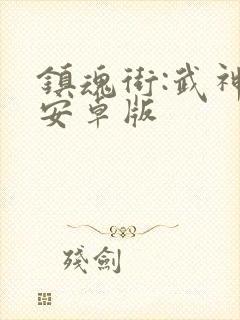 鎮魂街:武神
安卓版
殘劍